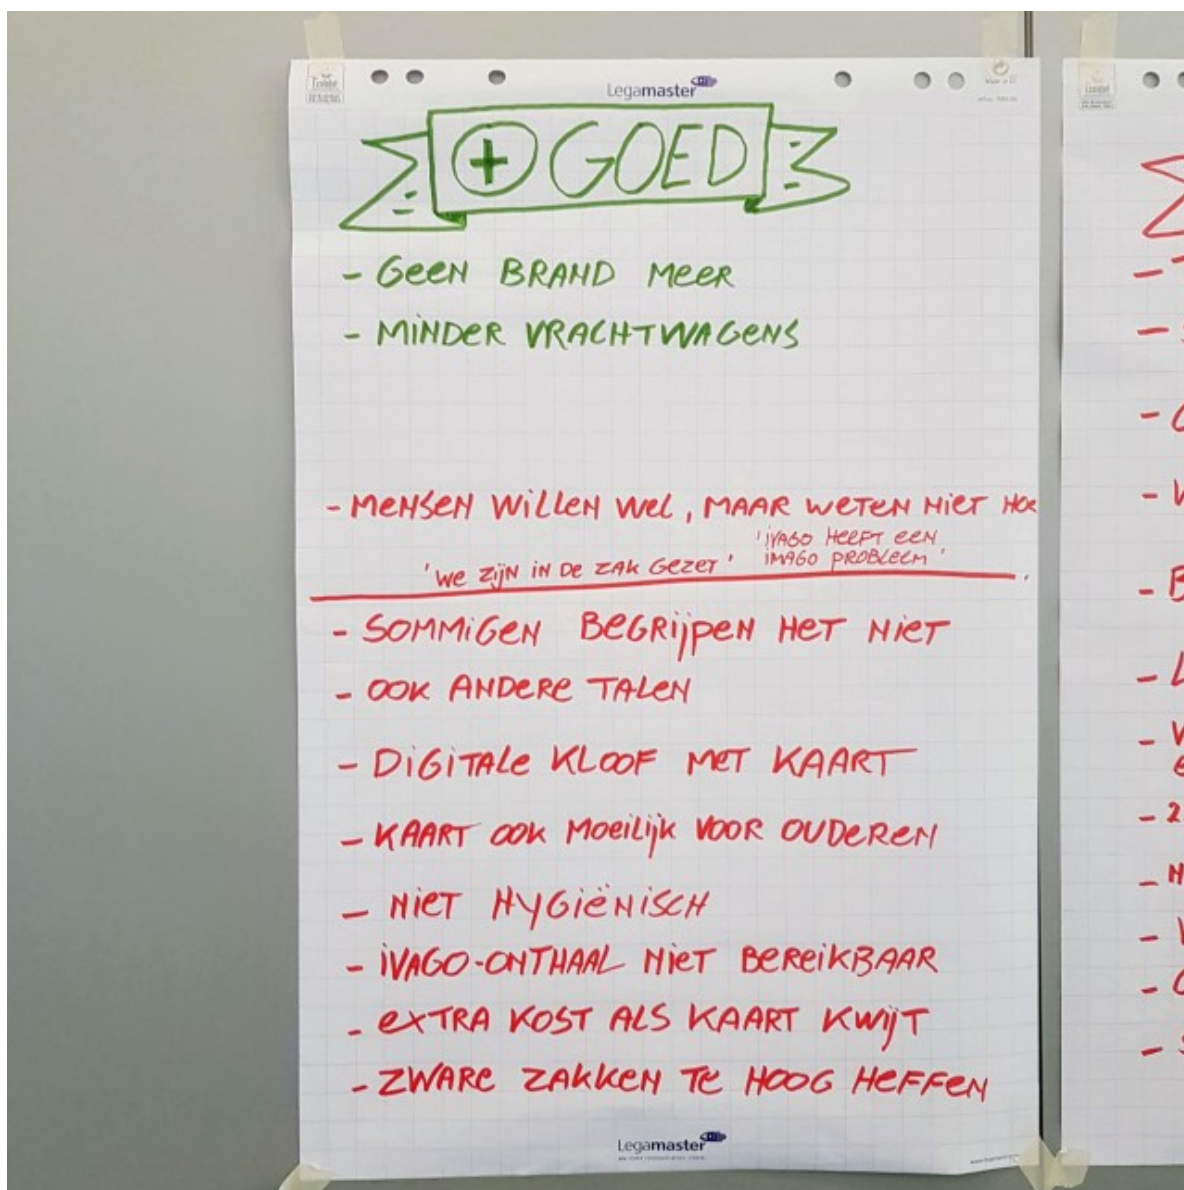 Legamaster
+ GOED
- GEEN BRAND MEER
- MINDER VRACHTWAGENS
- MENSEN WILLEN WEL, MAAR WETEN NIET HOE
'IVAGO HEEFT EEN
IMAGO PROBLEEM'
'WE ZIJN IN DE ZAK GEZET'
- SOMMIGEN BEGRIJPEN HET NIET
- OOK ANDERE TALEN
- DIGITALE KLOOF MET KAART
- KAART OOK MOEILIJK VOOR OUDEREN
- NIET HYGIËNISCH
- IVAGO-ONTHAAL NIET BEREIKBAAR
- EXTRA KOST ALS KAART KWIJT
- ZWARE ZAKKEN TE HOOG HEFFEN
Legamaster